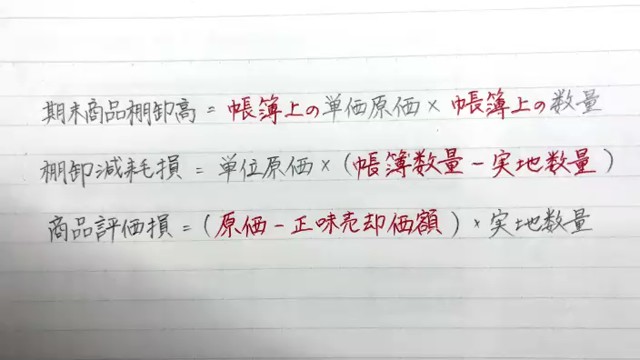 期末商品棚卸高 = 帳簿上の単価原価 × 帳簿上の数量
棚卸減耗損 = 単位原価 × (帳簿数量 - 実地数量)
商品評価損 = (原価 - 正味売却価額) × 実地数量